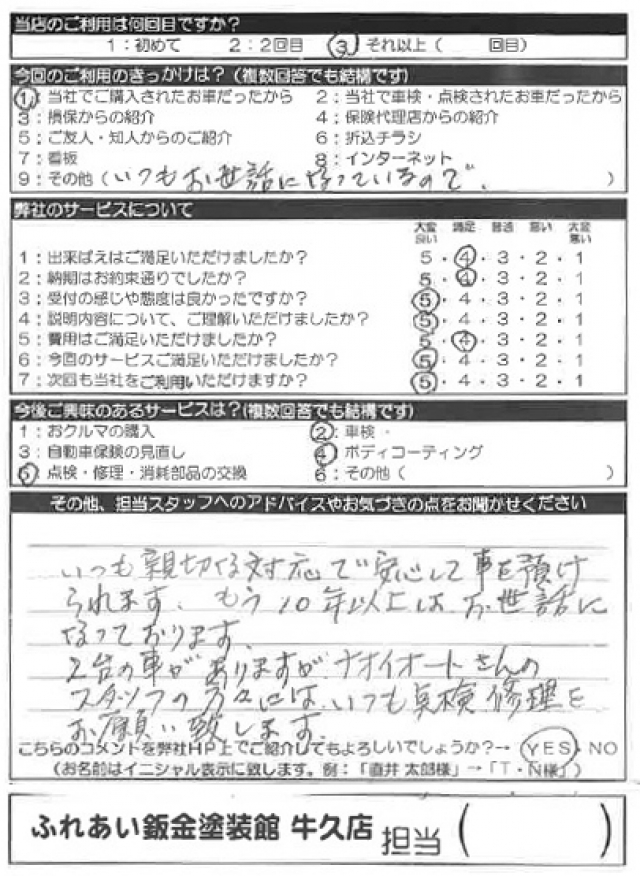 当店のご利用は何回目ですか?
1:初めて 2:2回目 3 それ以上( 回目)
今回のご利用のきっかけは?(複数回答でも結構です)
1:当社でご購入されたお車だったから 2:当社で車検・点検されたお車だったから
3:損保からの紹介 4:保険代理店からの紹介
5:ご友人・知人からのご紹介 6:折込チラシ
7:看板 8:インターネット
9:その他(いつもお世話になっているので、 )
弊社のサービスについて
大変良い 満足 普通 悪い 大変悪い
1:出来ばえはご満足いただけましたか? 5・4・3・2・1
2:納期はお約束通りでしたか? 5・4・3・2・1
3:受付の感じや態度は良かったですか? 5・4・3・2・1
4:説明内容について、ご理解いただけましたか? 5・4・3・2・1
5:費用はご満足いただけましたか? 5・4・3・2・1
6:今回のサービスご満足いただけましたか? 5・4・3・2・1
7:次回も当社をご利用いただけますか? 5・4・3・2・1
今後ご興味のあるサービスは?(複数回答でも結構です)
1:おクルマの購入 2:車検・
3:自動車保険の見直し 4:ボディコーティング
5:点検・修理・消耗部品の交換 6:その他( )
その他、担当スタッフへのアドバイスやお気づきの点をお聞かせください
いつも親切な対応で安心して車を預け
られます。もう10年以上はお世話に
なっております。
2台の車がありますが、ナオイオートさんの
スタッフの方々には、いつも点検修理を
お願い致します。
こちらのコメントを弊社HP上でご紹介してもよろしいでしょうか?→ YES・NO
(お名前はイニシャル表示に致します。例:「直井 太郎様」→「T・N様」)
ふれあい鈑金塗装館 牛久店 担当( )